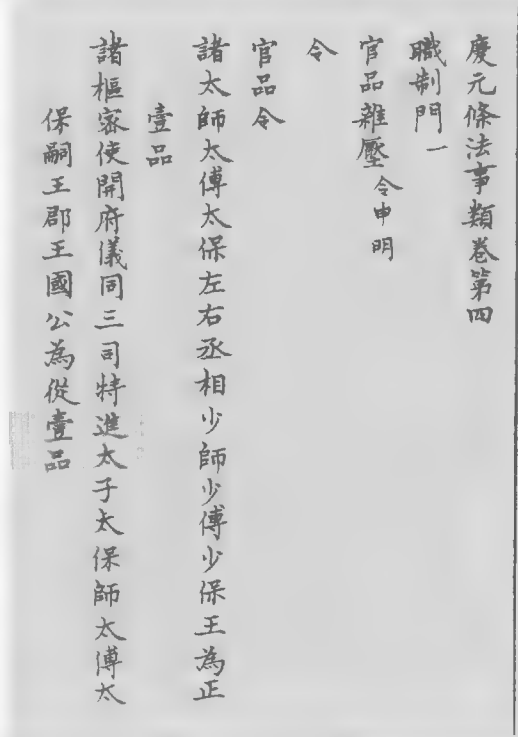 慶元條法事類卷第四
職制門一
官品雜壓令申明
令
官品令
諸太師太傅太保左右丞相少師少傅少保王為正
壹品
諸樞密使開府儀同三司特進太子太保師太傅太
保嗣王郡王國公為從壹品